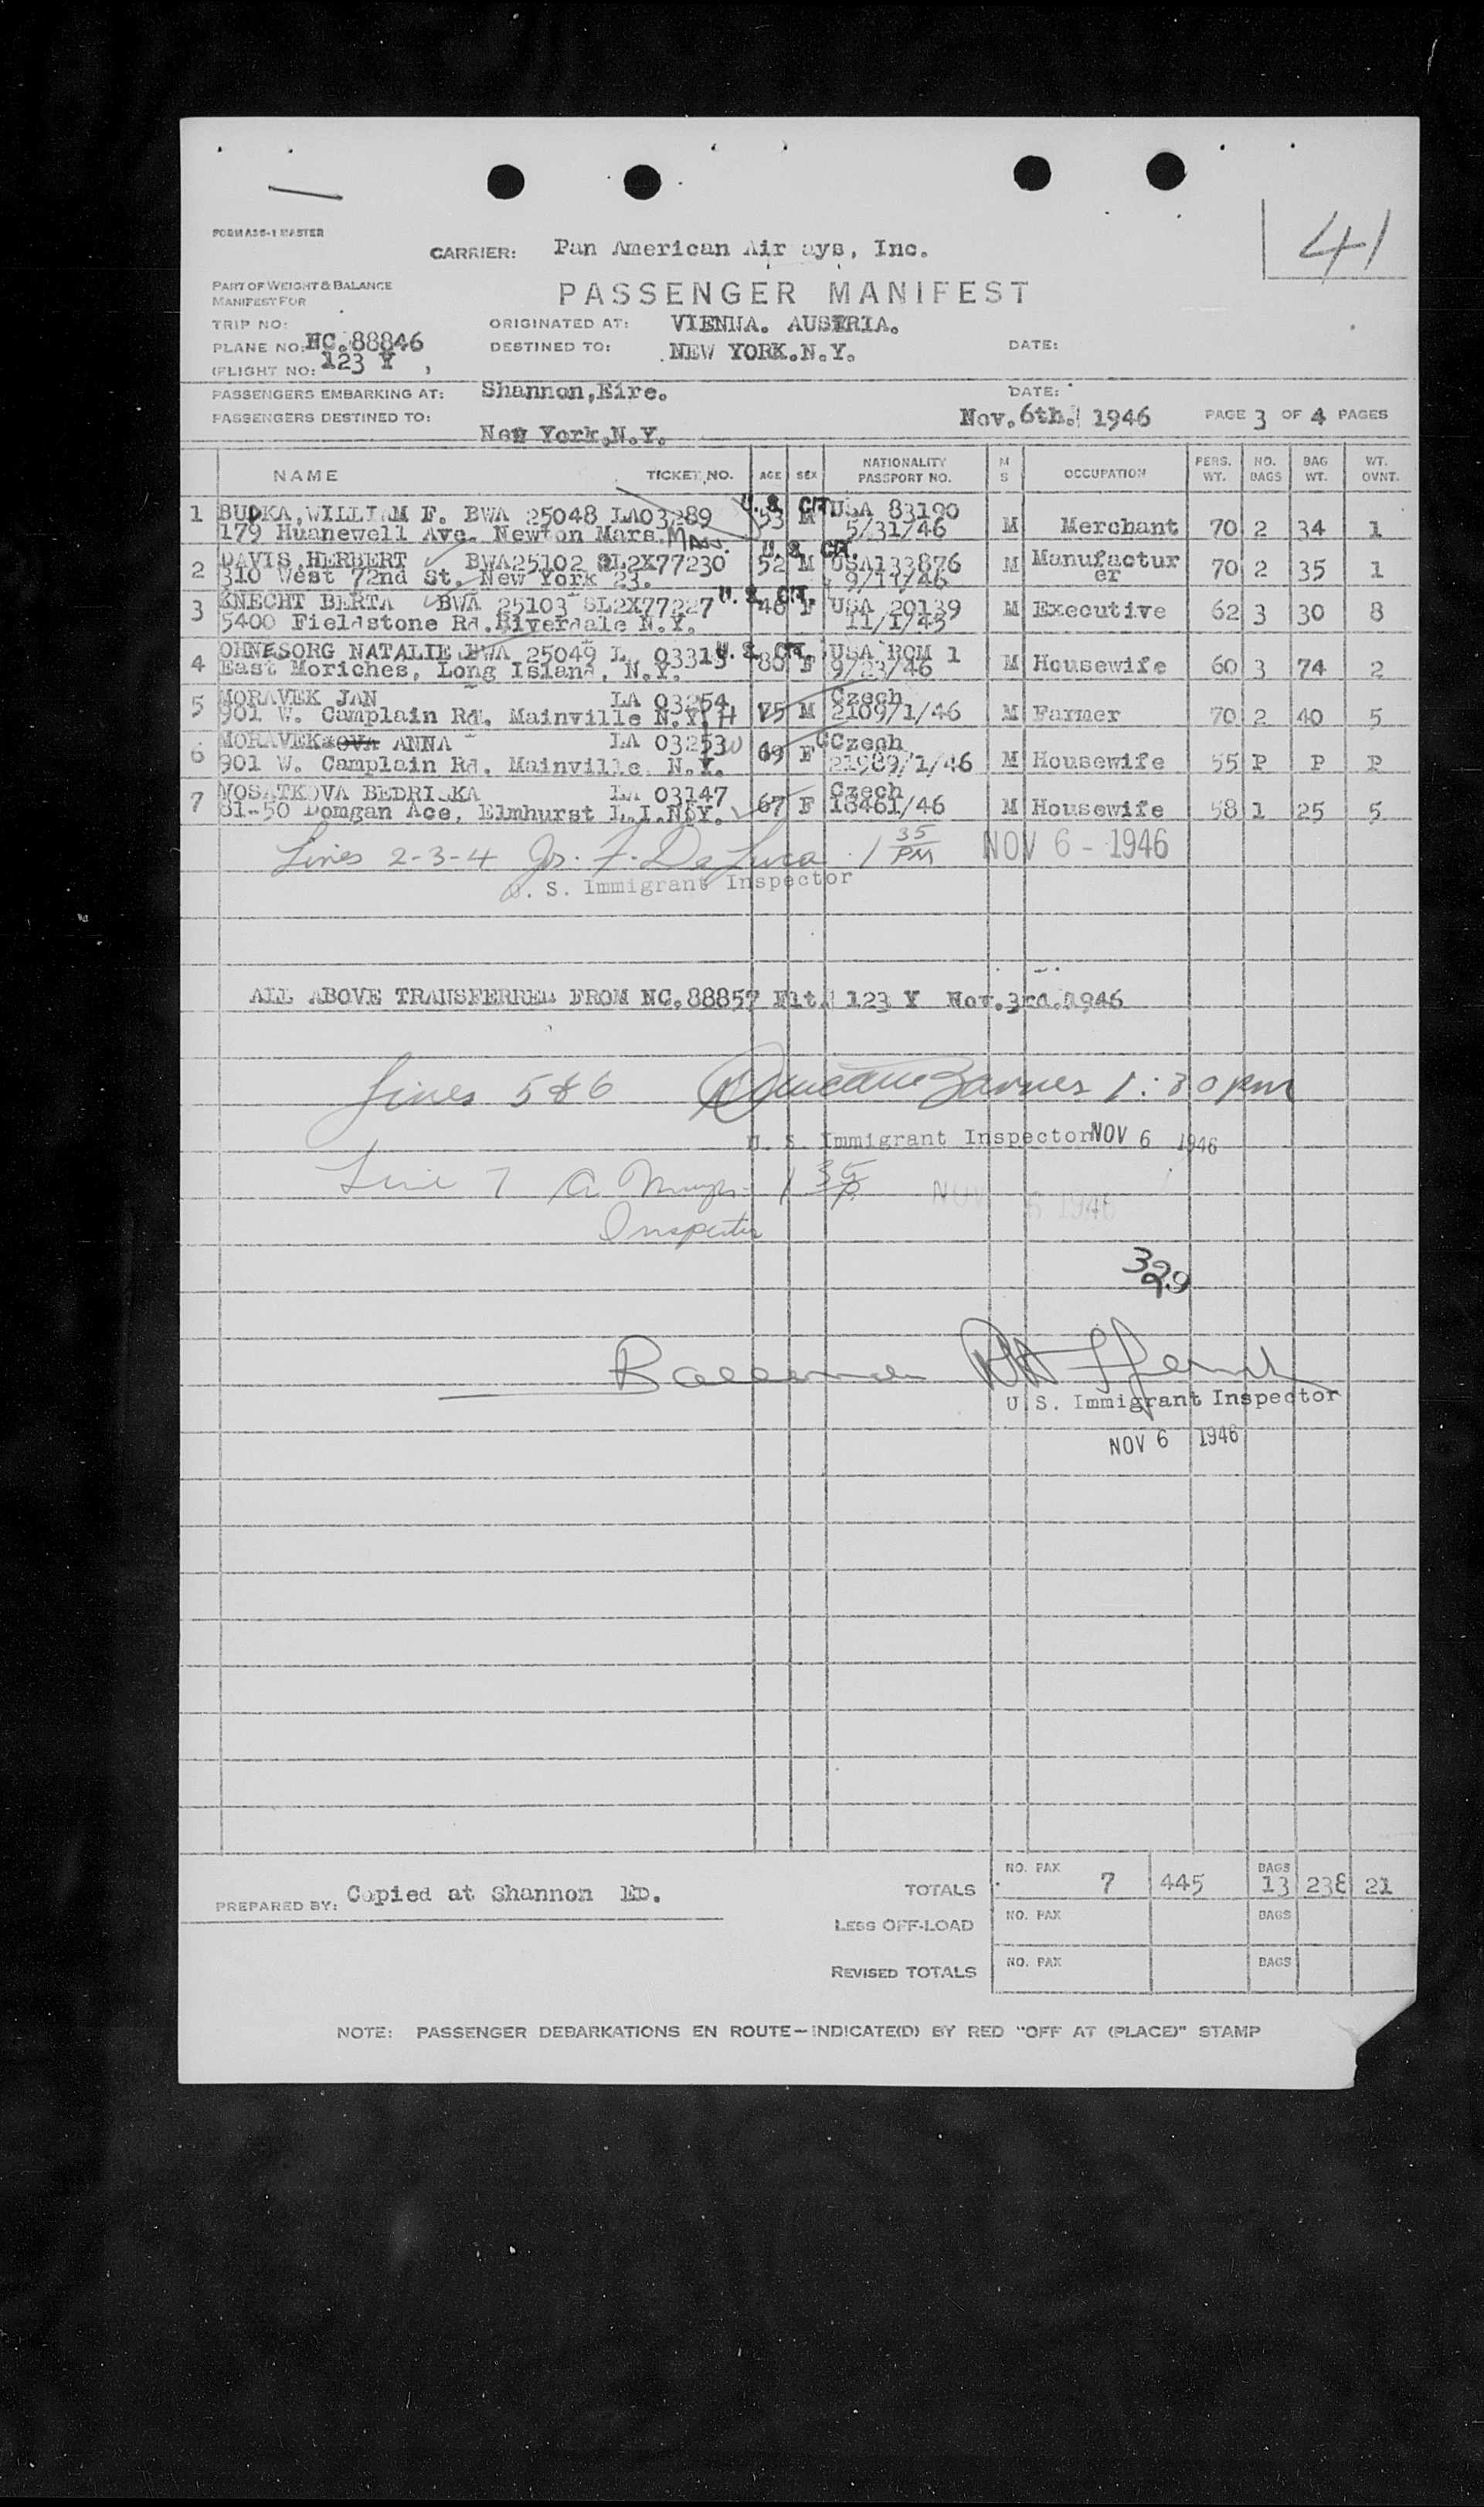 41
FORM ASS-1 MASTER
CARRIER: Pan American Air ays, Inc.
PART OF WEIGHT & BALANCE
MANIFEST FOR
PASSENGER MANIFEST
TRIP NO:
ORIGINATED AT: VIENNA. AUSTRIA.
PLANE NO: NC.88846
DESTINED TO: NEW YORK.N.Y.
DATE:
(FLIGHT NO: 123 Y
PASSENGERS EMBARKING AT: Shannon,Eire.
DATE:
PASSENGERS DESTINED TO: New York,N.Y.
Nov.6th. 1946 PAGE 3 OF 4 PAGES
NAME TICKET NO. AGE SEX NATIONALITY PASSPORT NO. M S OCCUPATION PERS. WT. NO. BAGS BAG WT. WT. OVNT.
U.S. CIT.
1 BUDKA,WILLIAM F. BWA 25048 LA03289 53 M USA 83190
179 Hunnewell Ave. Newton Mars. Mass. 5/31/46 M Merchant 70 2 34 1
U.S. CIT.
2 DAVIS,HERBERT BWA25102 SL2X77230 52 M USA133876 M Manufactur 70 2 35 1
310 West 72nd St. New York 23. 9/11/46 er
U.S. CIT.
3 KNECHT BERTA BWA 25103 SL2X77227 46 F USA 20139 M Executive 62 3 30 8
5400 Fieldstone Rd.Riverdale N.Y. 11/1/45
U.S. CIT.
4 OHNESORG NATALIE BWA 25049 L 03315 80 F USA ROM 1
East Moriches, Long Island, N.Y. 9/23/46 M Housewife 60 3 74 2
5 MORAVEK JAN LA 03254 75 M Czech
901 W. Camplain Rd. Mainville N.Y. 2109/1/46 M Farmer 70 2 40 5
6 MORAVEK ANNA LA 03253 69 F Czech
901 W. Camplain Rd. Mainville N.Y. 21989/1/46 M Housewife 55 P P P
7 VOSATKOVA BEDRISKA LA 03147 67 F Czech
81-50 Domgan Ace, Elmhurst L.I.N.Y. 18461/46 M Housewife 58 1 25 5
Lines 2-3-4 Jos. F. DeLuca 1 35 PM NOV 6 - 1946
U. S. Immigrant Inspector
ALL ABOVE TRANSFERRED FROM NC.88857 Flt. 123 Y Nov.3rd.1946
Lines 5&6 Duncan Barnes 1:30 pm
U. S. Immigrant Inspector NOV 6 1946
Line 7 1 35 P. NOV 6 1946
Inspector
329
U.S. Immigrant Inspector
NOV 6 1946
PREPARED BY: Copied at Shannon ED.
TOTALS NO. PAX 7 445 BAGS 13 238 21
LESS OFF-LOAD NO. PAX BAGS
REVISED TOTALS NO. PAX BAGS
NOTE: PASSENGER DEBARKATIONS EN ROUTE—INDICATE(D) BY RED "OFF AT (PLACE)" STAMP